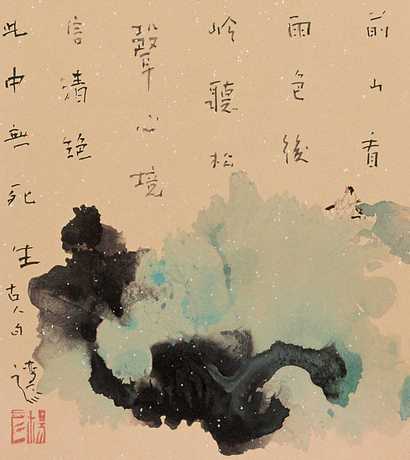 前山看
雨色後
岭聽松
聲心境
信清絶
此中無死生
古人句